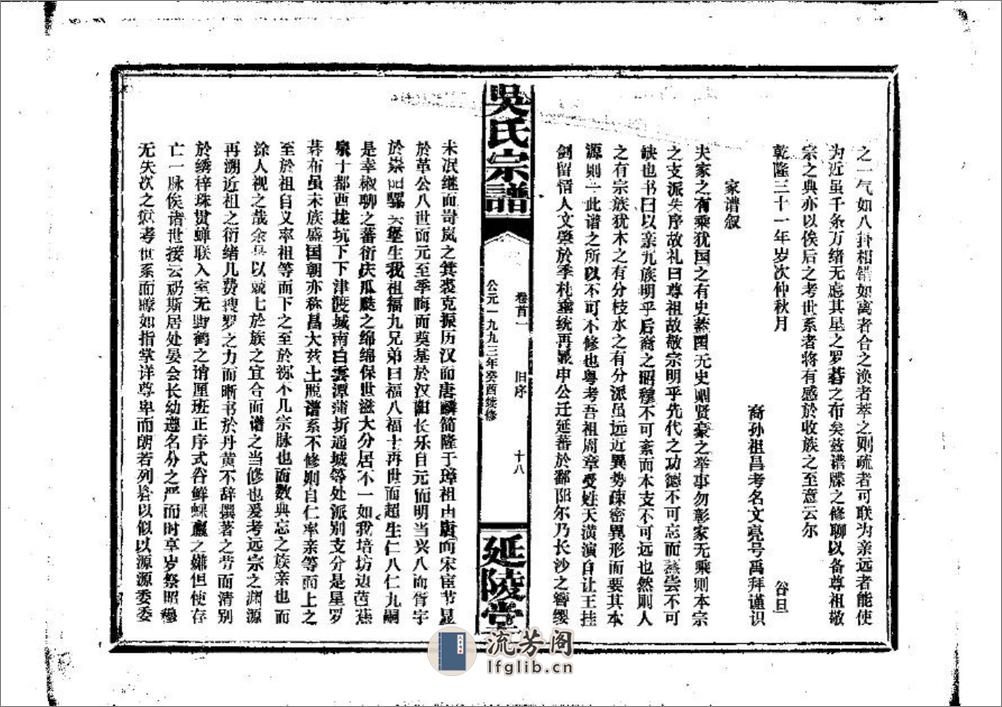 之一气如八卦相错如离者合之涣者萃之则疏者可联为亲远者能使
为近虽千条万绪无忘其星之罗碁之布矣兹谱牒之修聊以备尊祖敬
宗之典亦以俟后之考世系者将有感於收族之至意云尔
乾隆三十一年岁次仲秋月 谷旦
裔孙祖昌考名文亮号禹拜谨识
家谱叙
夫家之有乘犹国之有史蓋国无史则贤豪之举事勿彰家无乘则本宗
之支派失序故礼曰尊祖故敬宗明乎先代之功德不可忘而蒸尝不可
缺也书曰以亲九族明乎后裔之昭穆不可紊而本支不可远也然则人
之有宗族犹木之有分枝水之有分派虽远近異势疎密異形而要其本
源则一此谱之所以不可不修也粤考吾祖周章受姓天潢演自让王挂
剑留情人文肇於季札重统再 申公迁延蕃於鄱阳尔乃长沙之簪缨
吳氏宗譜
卷首一 旧序 十八
公元一九九三年癸酉续修
延陵堂
未泯继而岢岚之箕裘克振历汉而唐麟简隆于璋祖由 而宋宦节显
於革公八世而元至季晦而奠基於汉 长乐自元而明当兴八而肯宇
於崇 骡 堡生我祖福九兄弟曰福八福士再世而超生仁八仁九嗣
是幸椒聊之蕃衍庆瓜瓞之绵绵保世滋大分居不一如我培坊边芭蕉
泉十都西垅坑下下津陂城南白雲潭蒲圻通城等处派别支分是星罗
碁布虽未族盛国朝亦称昌大兹土 谱系不修则自仁率亲等而上之
至於祖自义率祖等而下之至於祢不几宗脉也而数典忘之族亲也而
涂人视之哉余 以兢七於族之宜合而谱之当修也爰考远宗之渊源
再溯近祖之衍绪几费搜罗之力而晰书於丹黄不辞撰著之劳而清别
於绣梓珠贯蝉联入室无 鹤之谓厘班正序式谷鲜蜾蠃之嫌但使存
亡一脉俟诸世接云礽斯居处晏会长幼遵名分之严而时享岁祭昭穆
无失次之 考世系而 如指掌详尊卑而朗若列眉以似以源源委委
流芳阁
lfglib.cn